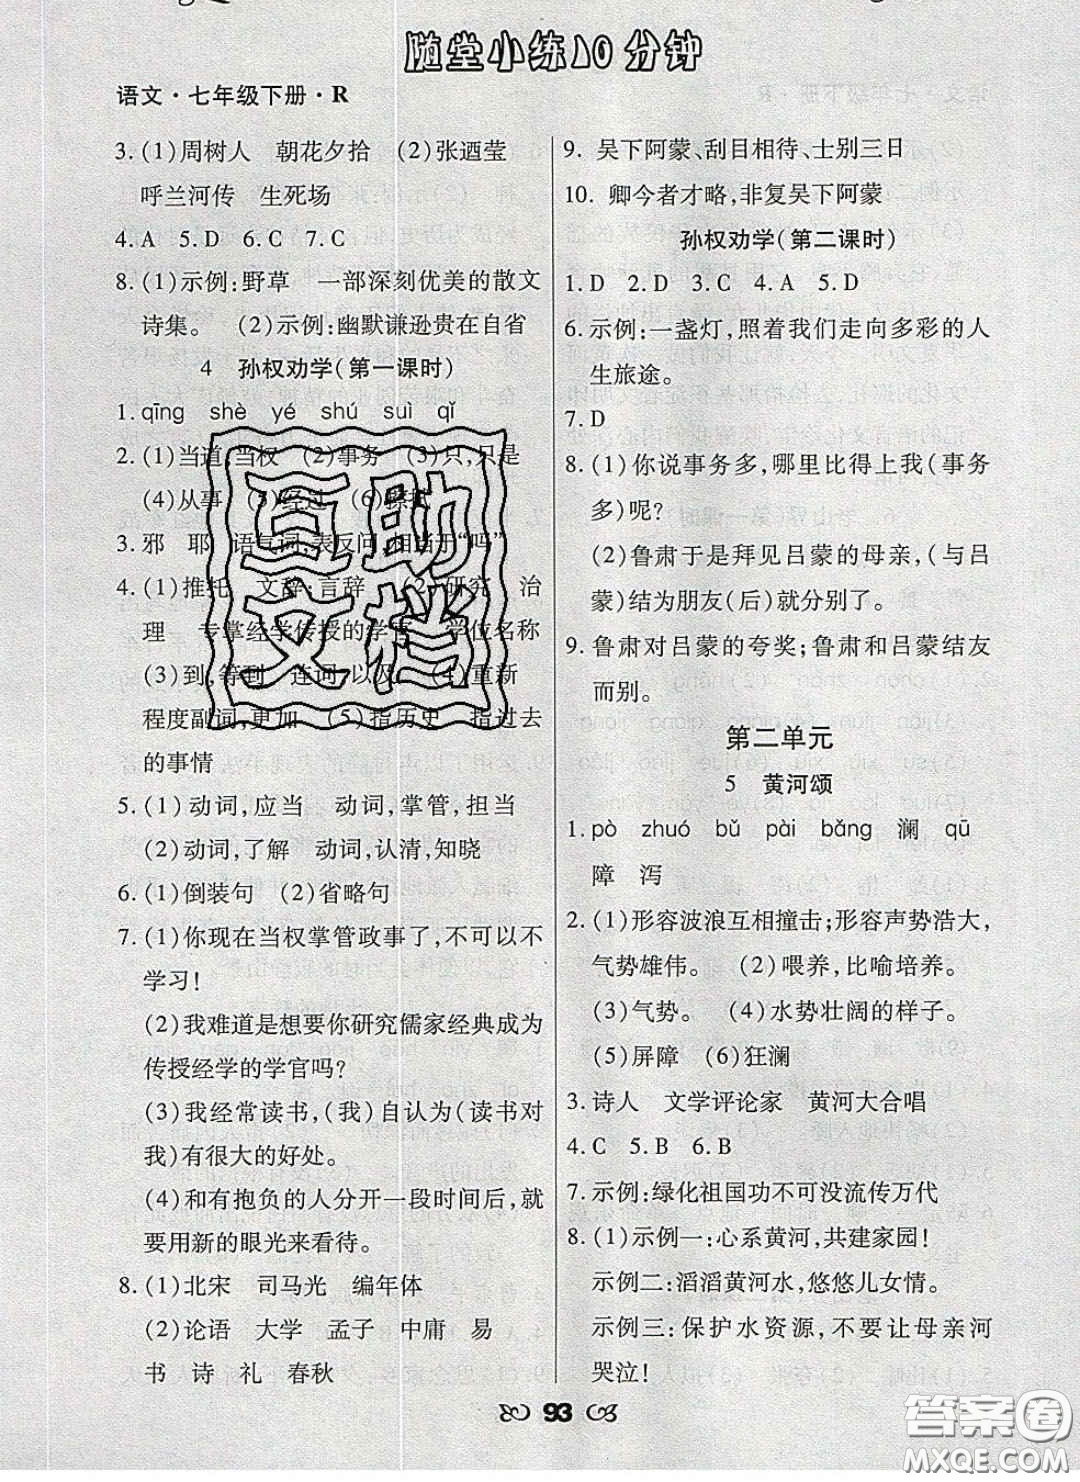 随堂小练10分钟
语文·七年级下册·R
3.(1)周树人 朝花夕拾 (2)张迺莹
呼兰河传 生死场
4.A 5.D 6.C 7.C
8.(1)示例:野草 一部深刻优美的散文
诗集。 (2)示例:幽默谦逊贵在自省
4 孙权劝学(第一课时)
1.qīng shè yé shú suì qǐ
2.(1)当道,当权 (2)事务 (3)只,只是
(4)从事 (5)经过 (6)
3.邪 耶 语气词,表反问,相当于“吗”
4.(1)推托 文辞;言辞 (2)研究 治
理 专掌经学传授的学官 学位名称
(3)到,等到 连词,以及 (4)重新
程度副词,更加 (5)指历史 指过去
的事情
5.(1)动词,应当 动词,掌管,担当
(2)动词,了解 动词,认清,知晓
6.(1)倒装句 (2)省略句
7.(1)你现在当权掌管政事了,不可以不
学习!
(2)我难道是想要你研究儒家经典成为
传授经学的学官吗?
(3)我经常读书,(我)自认为(读书对
我)有很大的好处。
(4)和有抱负的人分开一段时间后,就
要用新的眼光来看待。
8.(1)北宋 司马光 编年体
(2)论语 大学 孟子 中庸 易
书 诗 礼 春秋
9. 吴下阿蒙、刮目相待、士别三日
10. 卿今者才略,非复吴下阿蒙
孙权劝学(第二课时)
1.D 2.D 3.C 4.A 5.D
6.示例:一盏灯,照着我们走向多彩的人
生旅途。
7.D
8.(1)你说事务多,哪里比得上我(事务
多)呢?
(2)鲁肃于是拜见吕蒙的母亲,(与吕
蒙)结为朋友(后)就分别了。
9.鲁肃对吕蒙的夸奖;鲁肃和吕蒙结友
而别。
第二单元
5 黄河颂
1.pò zhuó bǔ pài bǎng 澜 qū
障 泻
2.(1)形容波浪互相撞击;形容声势浩大,
气势雄伟。 (2)喂养,比喻培养。
(3)气势。 (4)水势壮阔的样子。
(5)屏障 (6)狂澜
3.诗人 文学评论家 黄河大合唱
4.C 5.B 6.B
7.示例:绿化祖国功不可没流传万代
8.(1)示例一:心系黄河,共建家园!
示例二:滔滔黄河水,悠悠儿女情。
示例三:保护水资源,不要让母亲河
哭泣!
93
互助
文档
答案圈
MXQE.COM